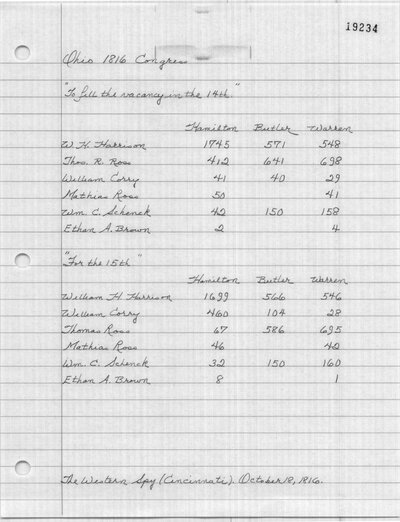 19234
Ohio 1816 Congress
"To fill the vacancy in the 14th."
Hamilton Butler Warren
W. H. Harrison 1745 571 548
Thos. R. Ross 412 641 698
William Corry 41 40 29
Mathias Ross 50 41
Wm. C. Schenck 42 150 158
Ethan A. Brown 2 4
"For the 15th"
Hamilton Butler Warren
William H Harrison 1699 566 546
William Corry 460 104 28
Thomas Ross 67 586 695
Mathias Ross 46 42
Wm. C. Schenck 32 150 160
Ethan A. Brown 8 1
The Western Spy (Cincinnati). October 18, 1816.